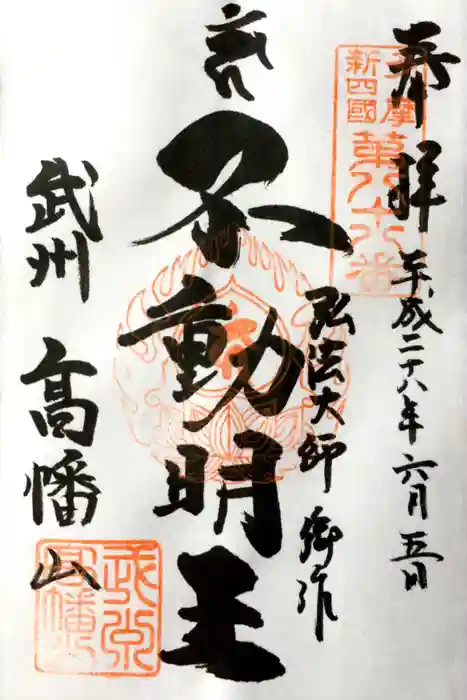 奉拝
平成二十八年六月五日
多摩
新四國
第八十八番
不動明王
弘法大師 御作
武州 高幡山